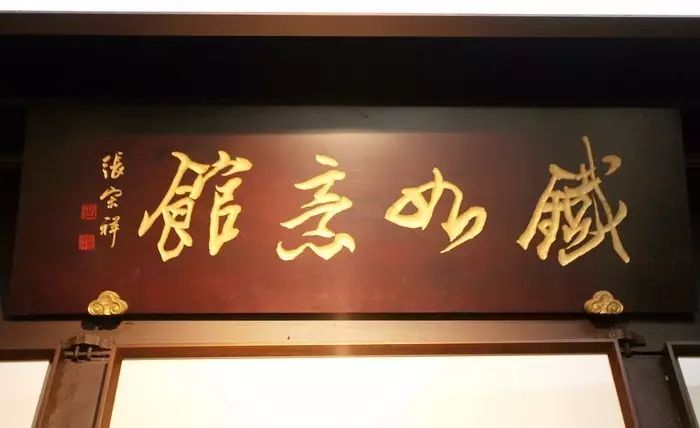 鐵如意館
張宗祥